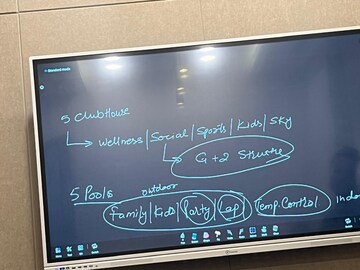 5 Clubhouse
Wellness | Social | Sports | Kids | Sky
G+2 Structre
5 Pools outdoor
Family | Kids | Party | Lap Temp. Control indoo